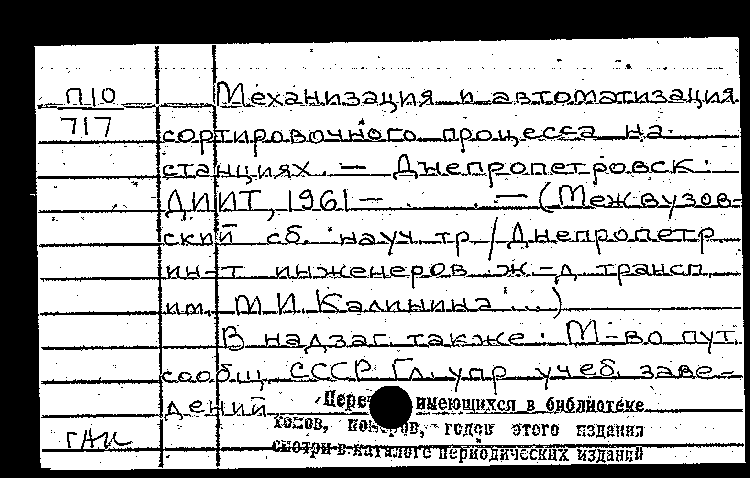 П10
717
Механизация и автоматизация
сортировочного процесса на
станциях. — Днепропетровск:
ДИИТ, 1961 — . . — (Межвузов-
ский сб. науч. тр / Днепропетр
ин-т инженеров ж.-д. трансп.
им. М.И. Калинина ...)
В надзаг. также: М-во пут.
сообщ. СССР. Гл. упр. учеб. заве-
дений
имеющихся в библиотеке
томов, номеров, годов этого издания
смотри в каталоге периодических изданий